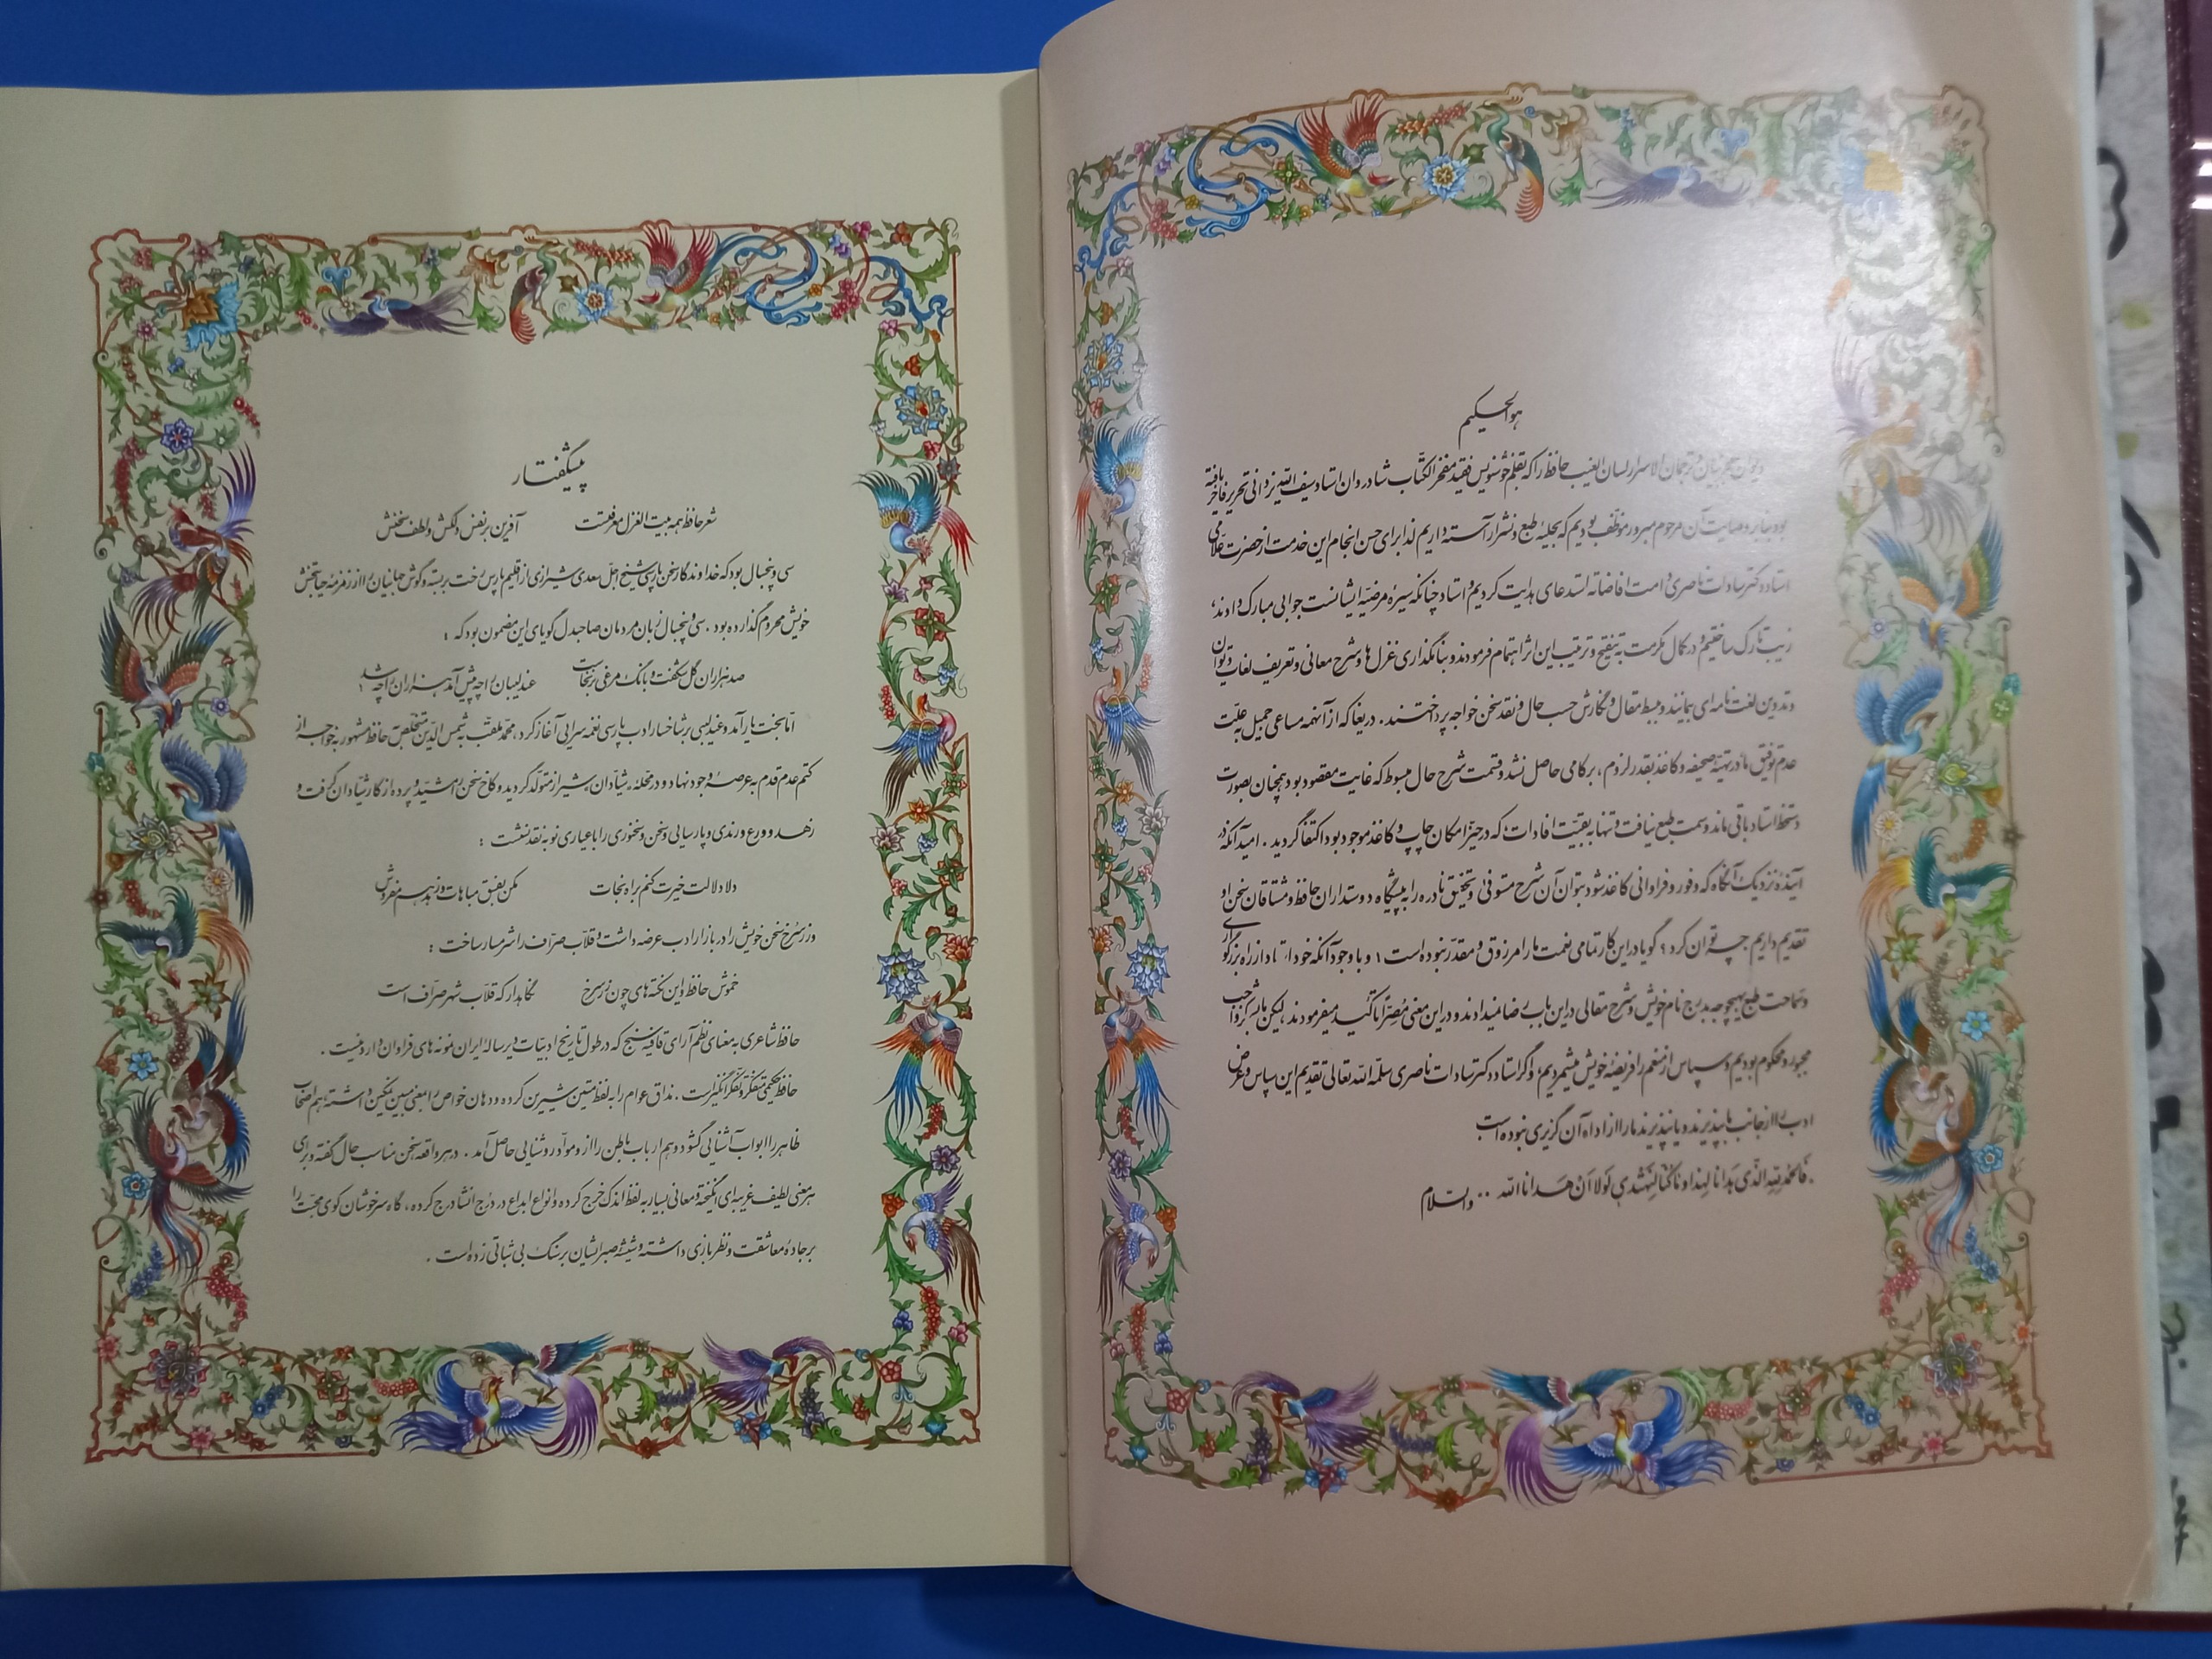 هو الحکیم
ترجمان الاسرار لسان الغیب حافظ را که بقلم خوشنویس فقید مفخر الکتّاب شادروان استاد سیف الله یزدانی تحریر فاخر یافته
بود بنابر وصایت آن مرحوم مبرور موظّف بودیم که بحلیهٔ طبع و نشر آراسته داریم لذا برای حسن انجام این خدمت از حضرت علّامی
استاد دکتر سادات ناصری دامت افاضاته استدعای هدایت کردیم و استاد چنانکه سیرهٔ مرضیّه ایشانست جوابی مبارک دادند،
زیب تارک ساختیم و در کمال مکرمت به تنقیح و ترتیب این اثر اهتمام فرمودند و بنا نگذاری غزل ها و شرح معانی و تعریف لغات دیوان
و تدوین لغت نامه ای بمانند و بسط مقال و نگارش حسب حال و نقد سخن خواجه پرداختند. دریغا که از آنهمه مساعی جمیل به علّت
عدم توفیق ما در تهیّه صحیفه و کاغذ بقدر لزوم، بر کامی حاصل نشد و قسمت شرح حال مبسوط که غایت مقصود بود همچنان بصورت
دستخط استاد باقی ماند و سمت طبع نیافت و تنها به بقیّت افادات که در حیّز امکان چاپ و کاغذ موجود بود اکتفا گردید. امید آنکه در
آیندهٔ نزدیک آنگاه که وفور و فراوانی کاغذ شود بتوان آن شرح مستوفی و تحقیق نادره را به پیشگاه دوستداران حافظ و مشتاقان سخن او
تقدیم داریم چه توان کرد؟ گویا در این کار تمامی نعمت ما را مرزوق و مقدّر نبوده است و با وجود آنکه خود استاد از راه بزرگواری
و سماحت طبع بهیچوجه بدرج نام خویش و شرح مقالی در این باب رضا نمیدادند و در این معنی مُصِرّاً تأکید میفرمودند لیکن ما بشکر واجب
مجبور و محکوم بودیم و سپاس از منعم را فریضهٔ خویش میشمردیم، و اگر استاد دکتر سادات ناصری سلّمه الله تعالی تقدیم این سپاس و عرض
ادب را از جانب ما بپذیرند و یا نپذیرند ما را از اداه آن گزیری نبوده است
فالحمد لله الّذی هَدانا لِهذا و ما کُنّا لِنَهتَدِی لَولا اَنْ هَدانا الله .. والسّلام
پیشگفتار
شعر حافظ همه بیت الغزل معرفتست آفرین بر نفس دلکش و لطف سخنش
سی و پنجسال بود که خداوندگار سخن پارسی شیخ اجلّ سعدی شیرازی از اقلیم پارس رخت بربسته و گوش جهانیان را از زمزمهٔ حیاتبخش
خویش محروم گذارده بود. سی و پنجسال زبان مردمان صاحبدل گویای این مضمون بود که :
صد هزاران گل شکفت و بانگ مرغی برنخاست عندلیبان را چه پیش آمد هزاران را چه شد
امّا بخت یار آمد و عندلیبی بر شاخسار ادب پارسی نغمه سرایی آغاز کرد، محمّد ملقّب به شمس الدّین متخلّص به حافظ مشهور به خواجه از
کتم عدم قدم به عرصهٔ وجود نهاد و در محلّهٔ شیّادان شیراز متولّد گردید و کاخ سخن را مشیّد و پرده از کار شیّادان گرفت و
زهد و ورع و رندی و پارسایی و سخن و سخنوری را با عیاری نو به نقد نشست :
دلا دلالت خیرت کنم براه نجات مکن بفسق مباهات و زهد هم مفروش
و زر سرخ سخن خویش را در بازار ادب عرضه داشت و قلّاب صرّاف را شرمسار ساخت :
خموش حافظ و این نکته های چون زر سرخ نگاهدار که قلّاب شهر صرّاف است
حافظ شاعری به معنای نظم آرای قافیه سنج که در طول تاریخ ادبیّات دیرسالهٔ ایران نمونه های فراوان دارد نیست.
حافظ حکیمی متفکّر و تفکّر انگیز است. مذاق عوام را به لفظ متین شیرین کرده و دهان خواص را بمعنی مبین نمکین داشته هم اصحاب
ظاهر را ابواب آشنایی گشوده و هم ارباب باطن را از و موادّ روشنایی حاصل آمد. در هر واقعه سخن مناسب حال گفته و برای
هر معنی لطیف غریبه ای انگیخته و معانی بسیار به لفظ اندک خرج کرده و انواع ابداع در درج انشا درج کرده، گاه سرخوشان کوی محبّت را
بر جادهٔ معاشقت و نظربازی داشته و شیشهٔ صبر ایشان بر سنگ بی ثباتی زده است.